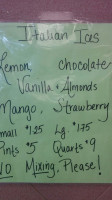 Italian Ices
Lemon chocolate
Vanilla + Almonds
Mango, Strawberry
mall $1.25 Lg. $1.75
ints $5 Quarts $9
NO Mixing, Please!